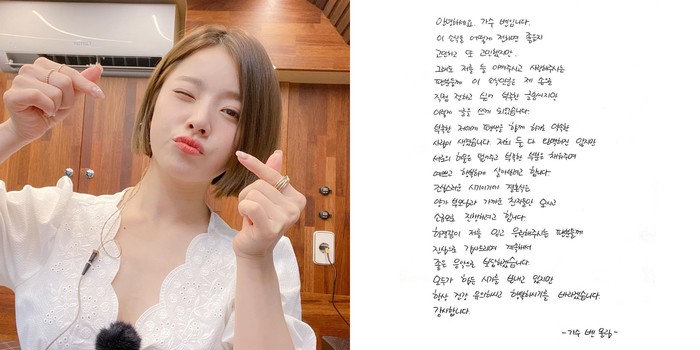 안녕하세요. 가수 벤입니다.
이 소식을 어떻게 전하면 좋을지
고민하고 또 고민했지만..
그래도 저를 늘 아껴주시고 사랑해주시는
팬분들께 이 소식만큼은 제 손으로
직접 전하고 싶어 부족한 글솜씨지만
이렇게 글을 쓰게 되었습니다.
부족한 저에게 평생을 함께 하기로 약속한
사람이 생겼습니다. 저희 둘 다 완벽하진 않지만
서로의 허물은 덮어주고 부족한 부분은 채워주며
예쁘고 행복하게 살아보려고 합니다.
조심스러운 시기이기에 결혼식은
양가 부모님과 가까운 친지분만 모시고
소규모로 진행하려고 합니다.
한결같이 저를 믿고 응원해주시는 팬분들께
진심으로 감사드리며 계속해서
좋은 음악으로 보답하겠습니다.
모두가 힘든 시기를 보내고 있지만
항상 건강 유의하시고 행복하시기를 바라겠습니다.
감사합니다.
-가수 벤 올림-